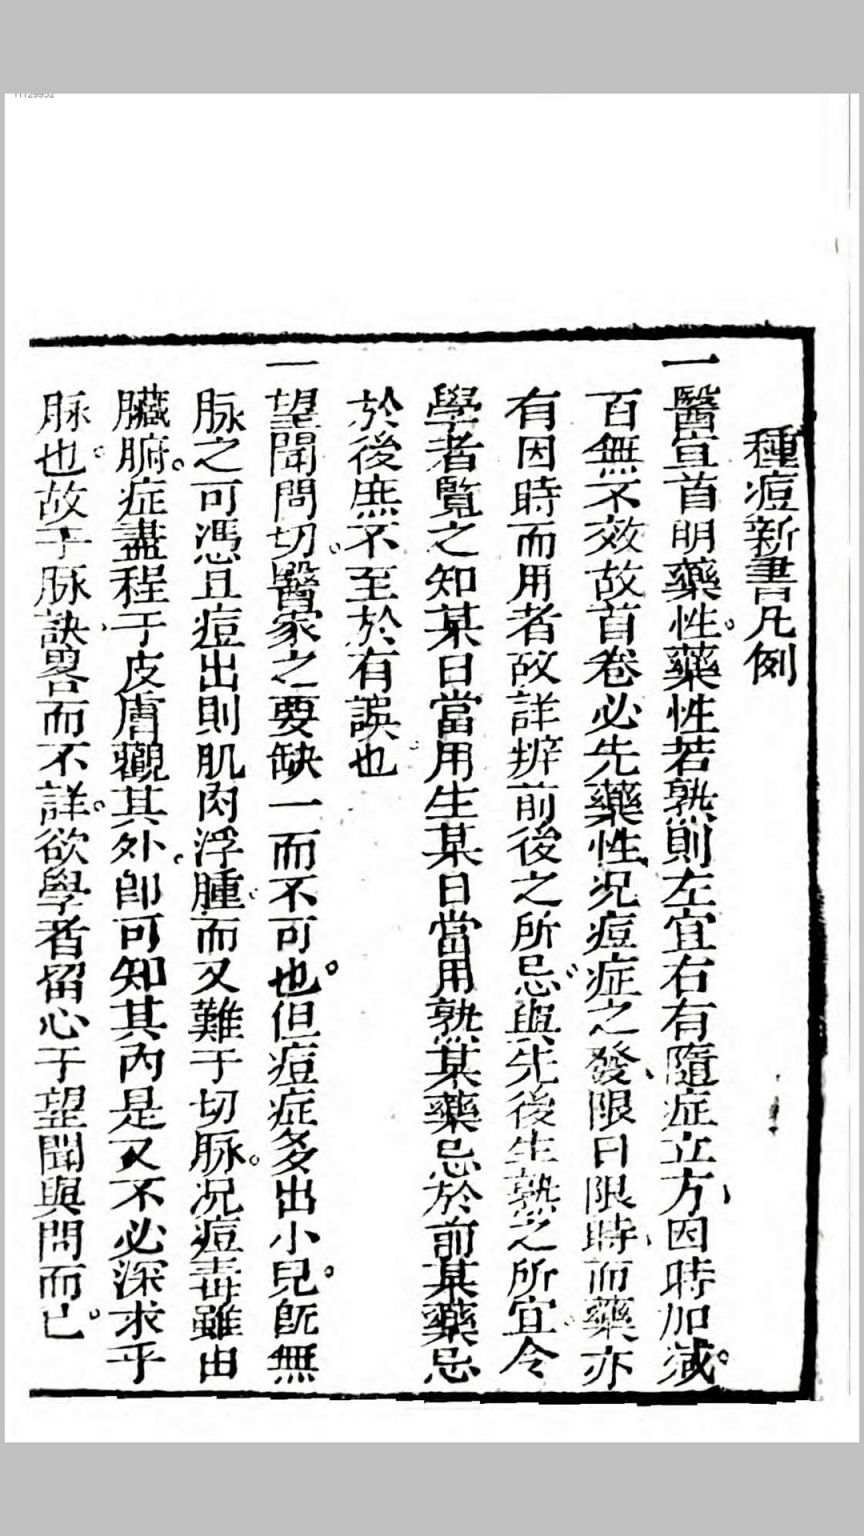 11129952
種痘新書凡例
一醫宜首明藥性。藥性若熟則左宜右有隨症立方、因時加減。
百無不效故首卷必先藥性、况痘症之發、限日限時、而藥亦
有因時而用者故詳辨前後之所忌與先後生熟之所宜。令
學者覧之知某日當用生某日當用熟某藥忌於前某藥忌
於後庶不至於有誤也
一望聞問切。醫家之要缺一而不可也。但痘症多出小兒。旣無
脉之可憑且痘出則肌肉浮腫。而又難于切脉。况痘毒雖由
臟腑。症盡程于皮膚觀其外。卽可知其内是又不必深求乎
脉也。故于脉訣、畧而不詳。欲學者留心于望聞與問而已。